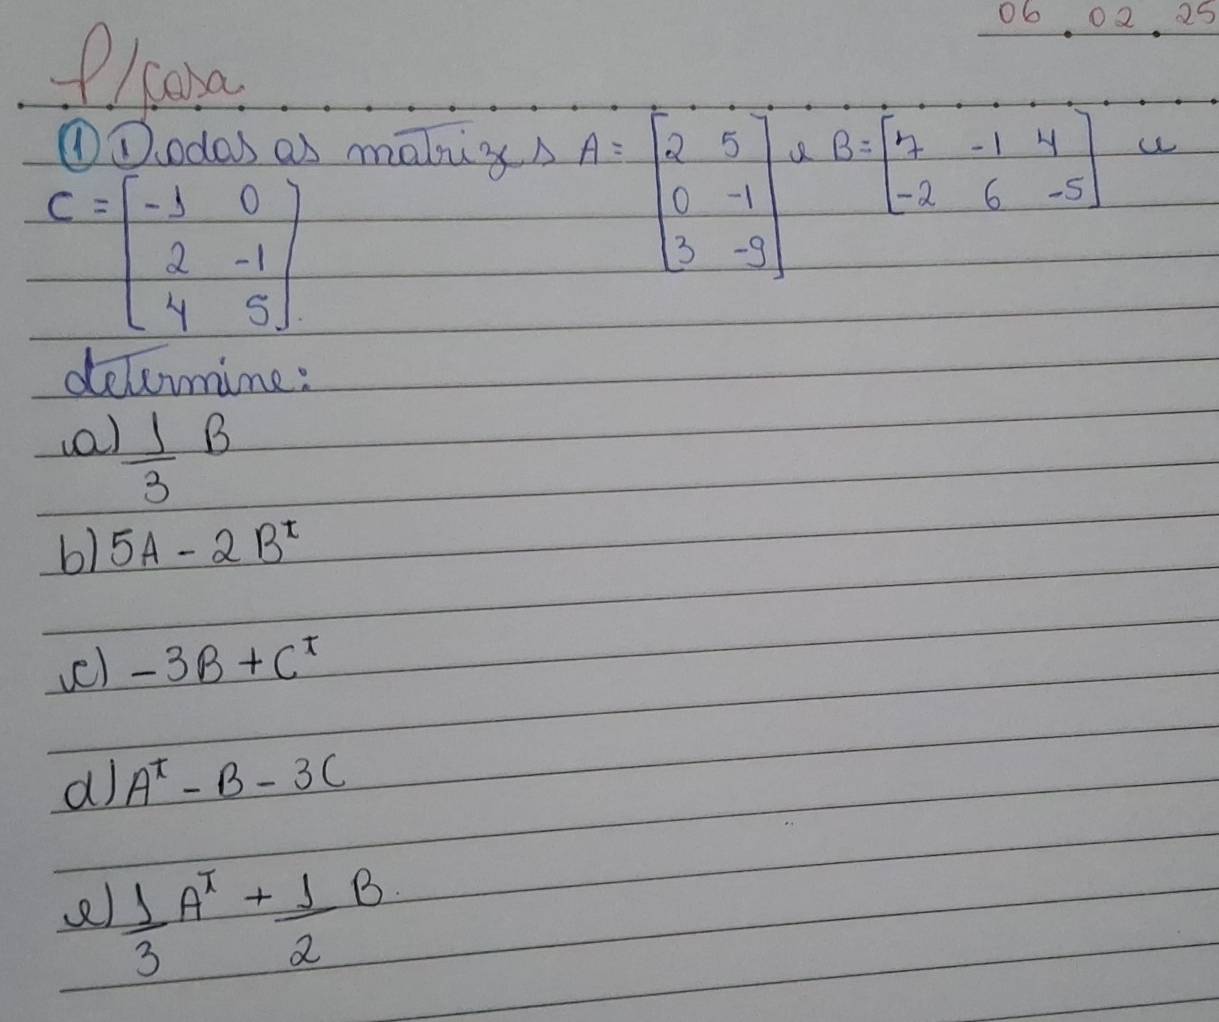 06 . 02 . 25
P/casa
① Dadas as matrizes A = [2 5 e B = [7 -1 4 e
C = [-1 0 0 -1 -2 6 -5]
2 -1 3 -9]
4 5].
determine:
a) 1/3 B
b) 5A - 2Bᵗ
c) -3B + Cᵗ
d) Aᵗ - B - 3C
e) 1/3 Aᵗ + 1/2 B.